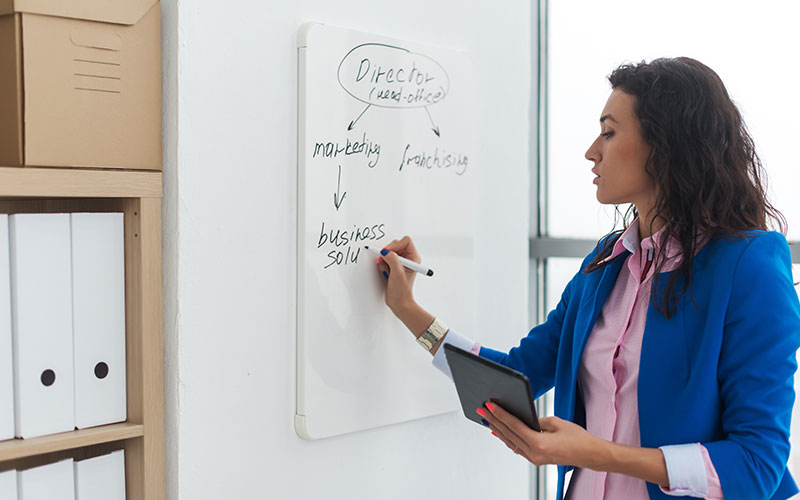 Director
(head-office)
marketing franchising
business
solu